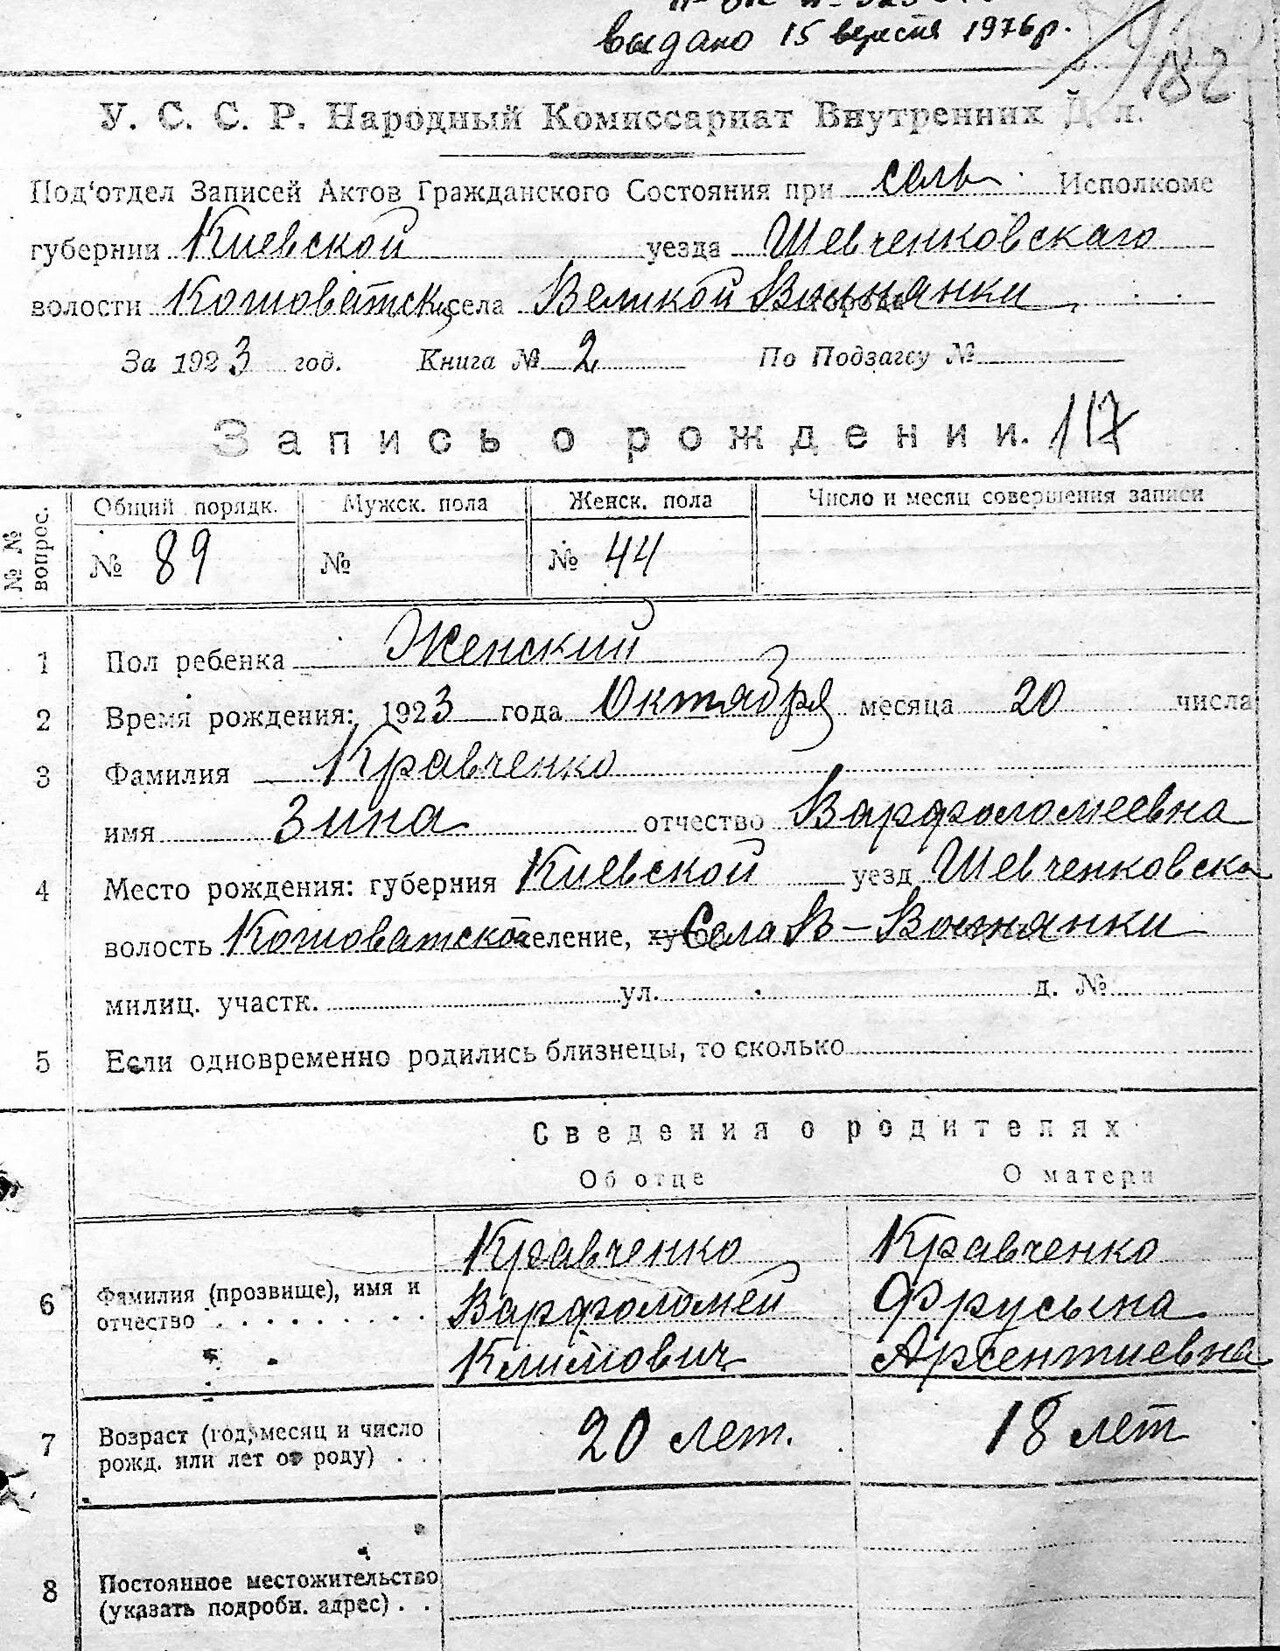 выдано 15 вересня 1976 р.
182
У. С. С. Р. Народный Комиссариат Внутренних Дел.
Под'отдел Записей Актов Гражданского Состояния при сель Исполкоме
губернии Киевской уезда Шевченковскаго
волости села Великой Вовнянки
За 1923 год. Книга № 2 По Подзагсу №
Запись о рождении. 117
№ № вопрос. Общий порядк. Мужск. пола Женск. пола Число и месяц совершения записи
№ 89 № № 44
1 Пол ребенка Женский
2 Время рождения: 1923 года Октября месяца 20 числа
3 Фамилия Кравченко
имя Зина отчество Варфоломеевна
4 Место рождения: губерния Киевской уезд Шевченковска
волость селение, Села В-Вовнянки
милиц. участк. ул. д. №
5 Если одновременно родились близнецы, то сколько
Сведения о родителях
Об отце О матери
Кравченко Кравченко
6 Фамилия (прозвище), имя и отчество Варфоломей Фрусына
Климович Арсентиевна
7 Возраст (год, месяц и число рожд. или лет от роду) 20 лет. 18 лет
8 Постоянное местожительство
(указать подробн. адрес)